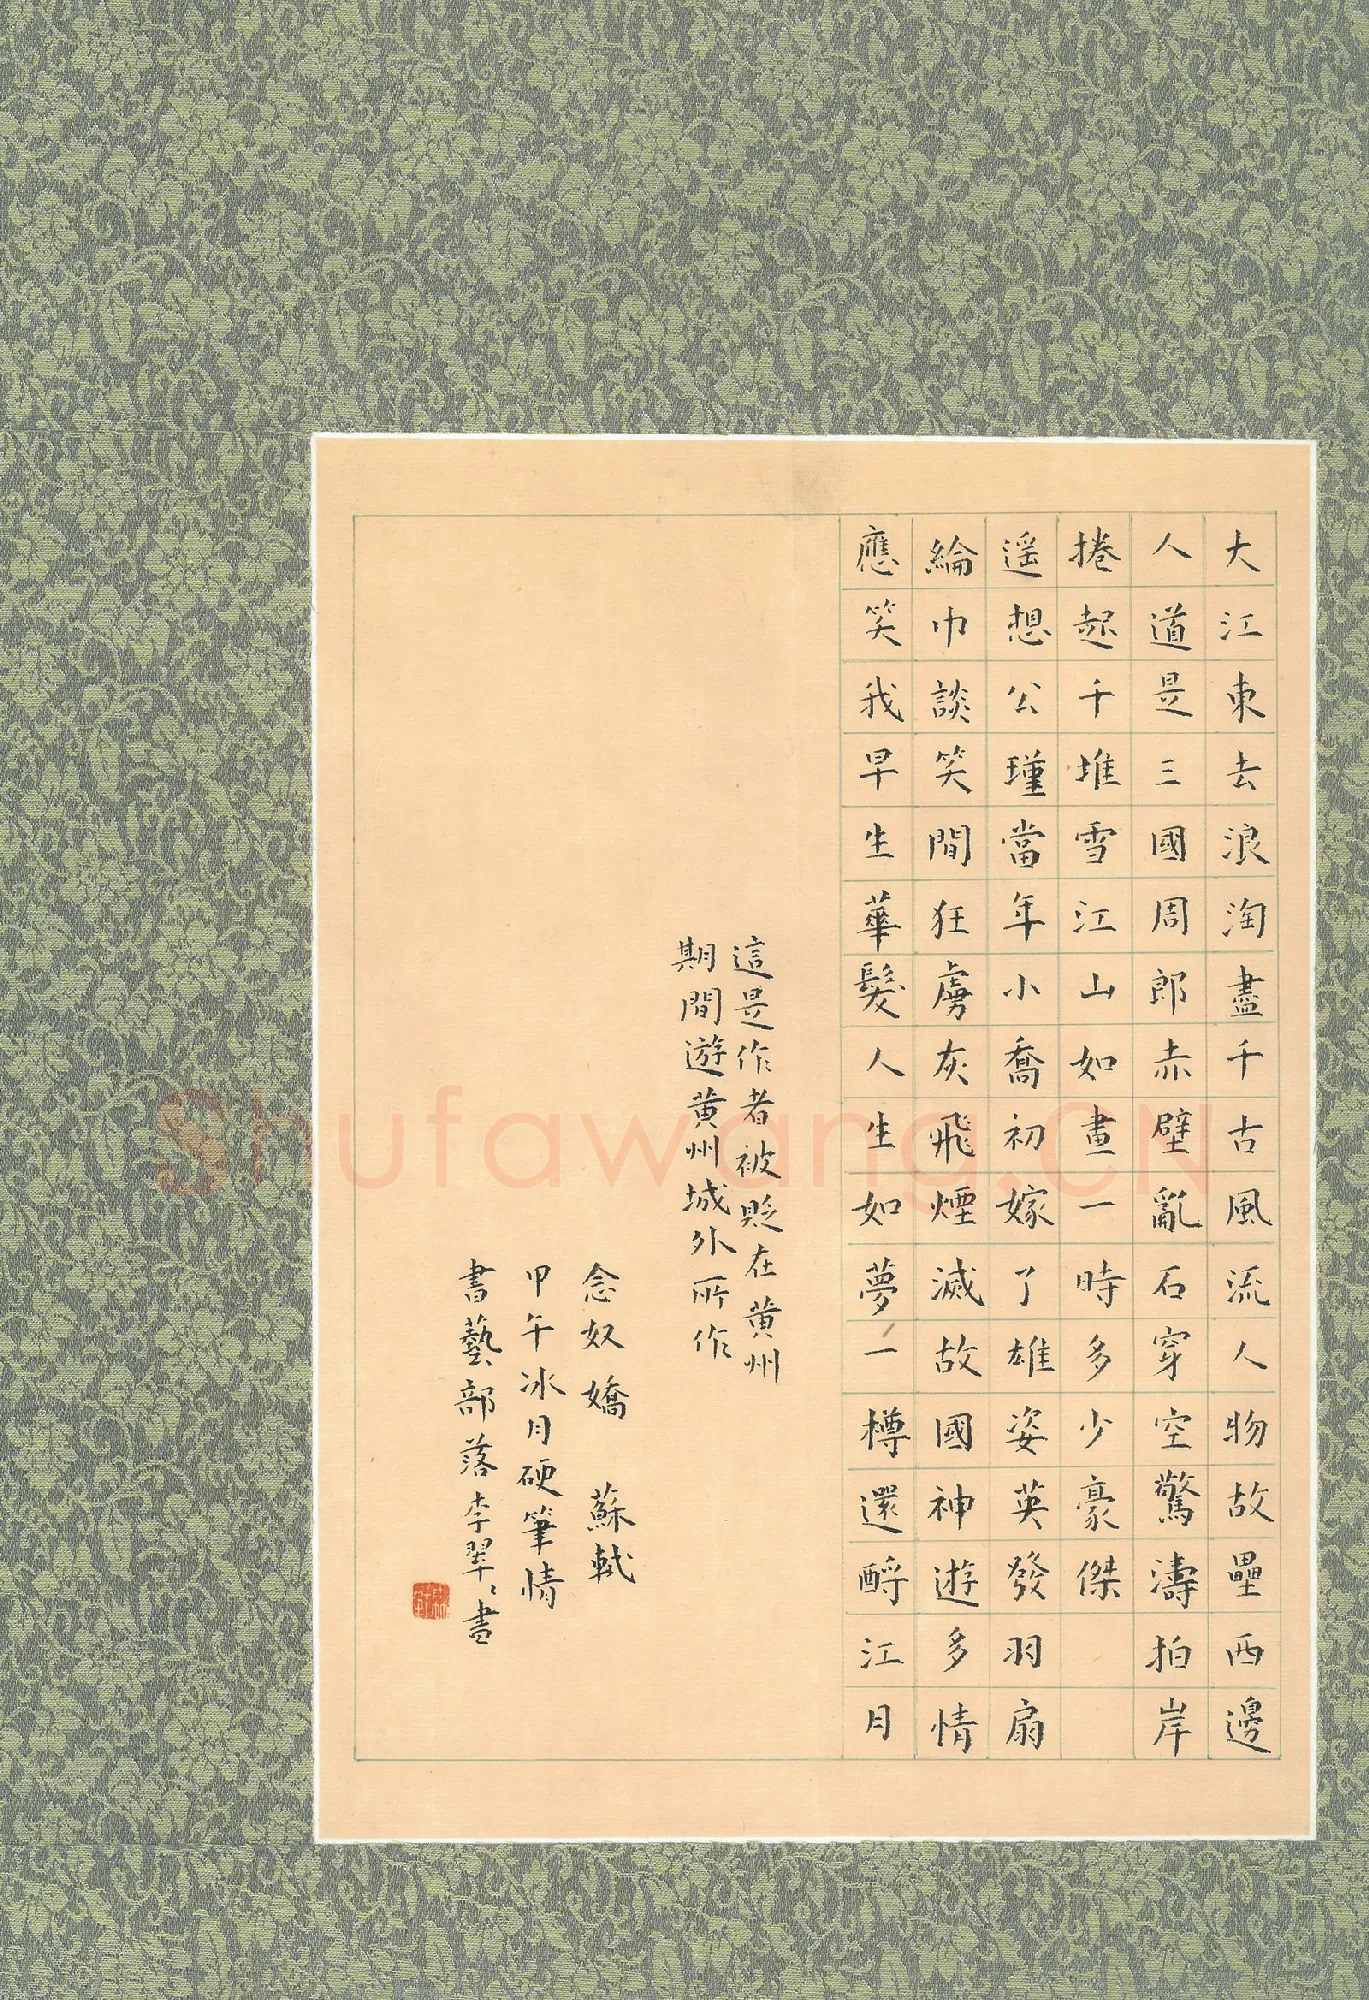 大江東去浪淘盡千古風流人物故壘西邊
人道是三國周郎赤壁亂石穿空驚濤拍岸
捲起千堆雪江山如畫一時多少豪傑
遥想公瑾當年小喬初嫁了雄姿英發羽扇
綸巾談笑間狂虜灰飛煙滅故國神遊多情
應笑我早生華髮人生如夢一樽還酹江月
這是作者被貶在黄州
期間遊黄州城外所作
念奴嬌 蘇軾
甲午冰月硬筆情
書藝部落李翠〻書
Shufawang.CN